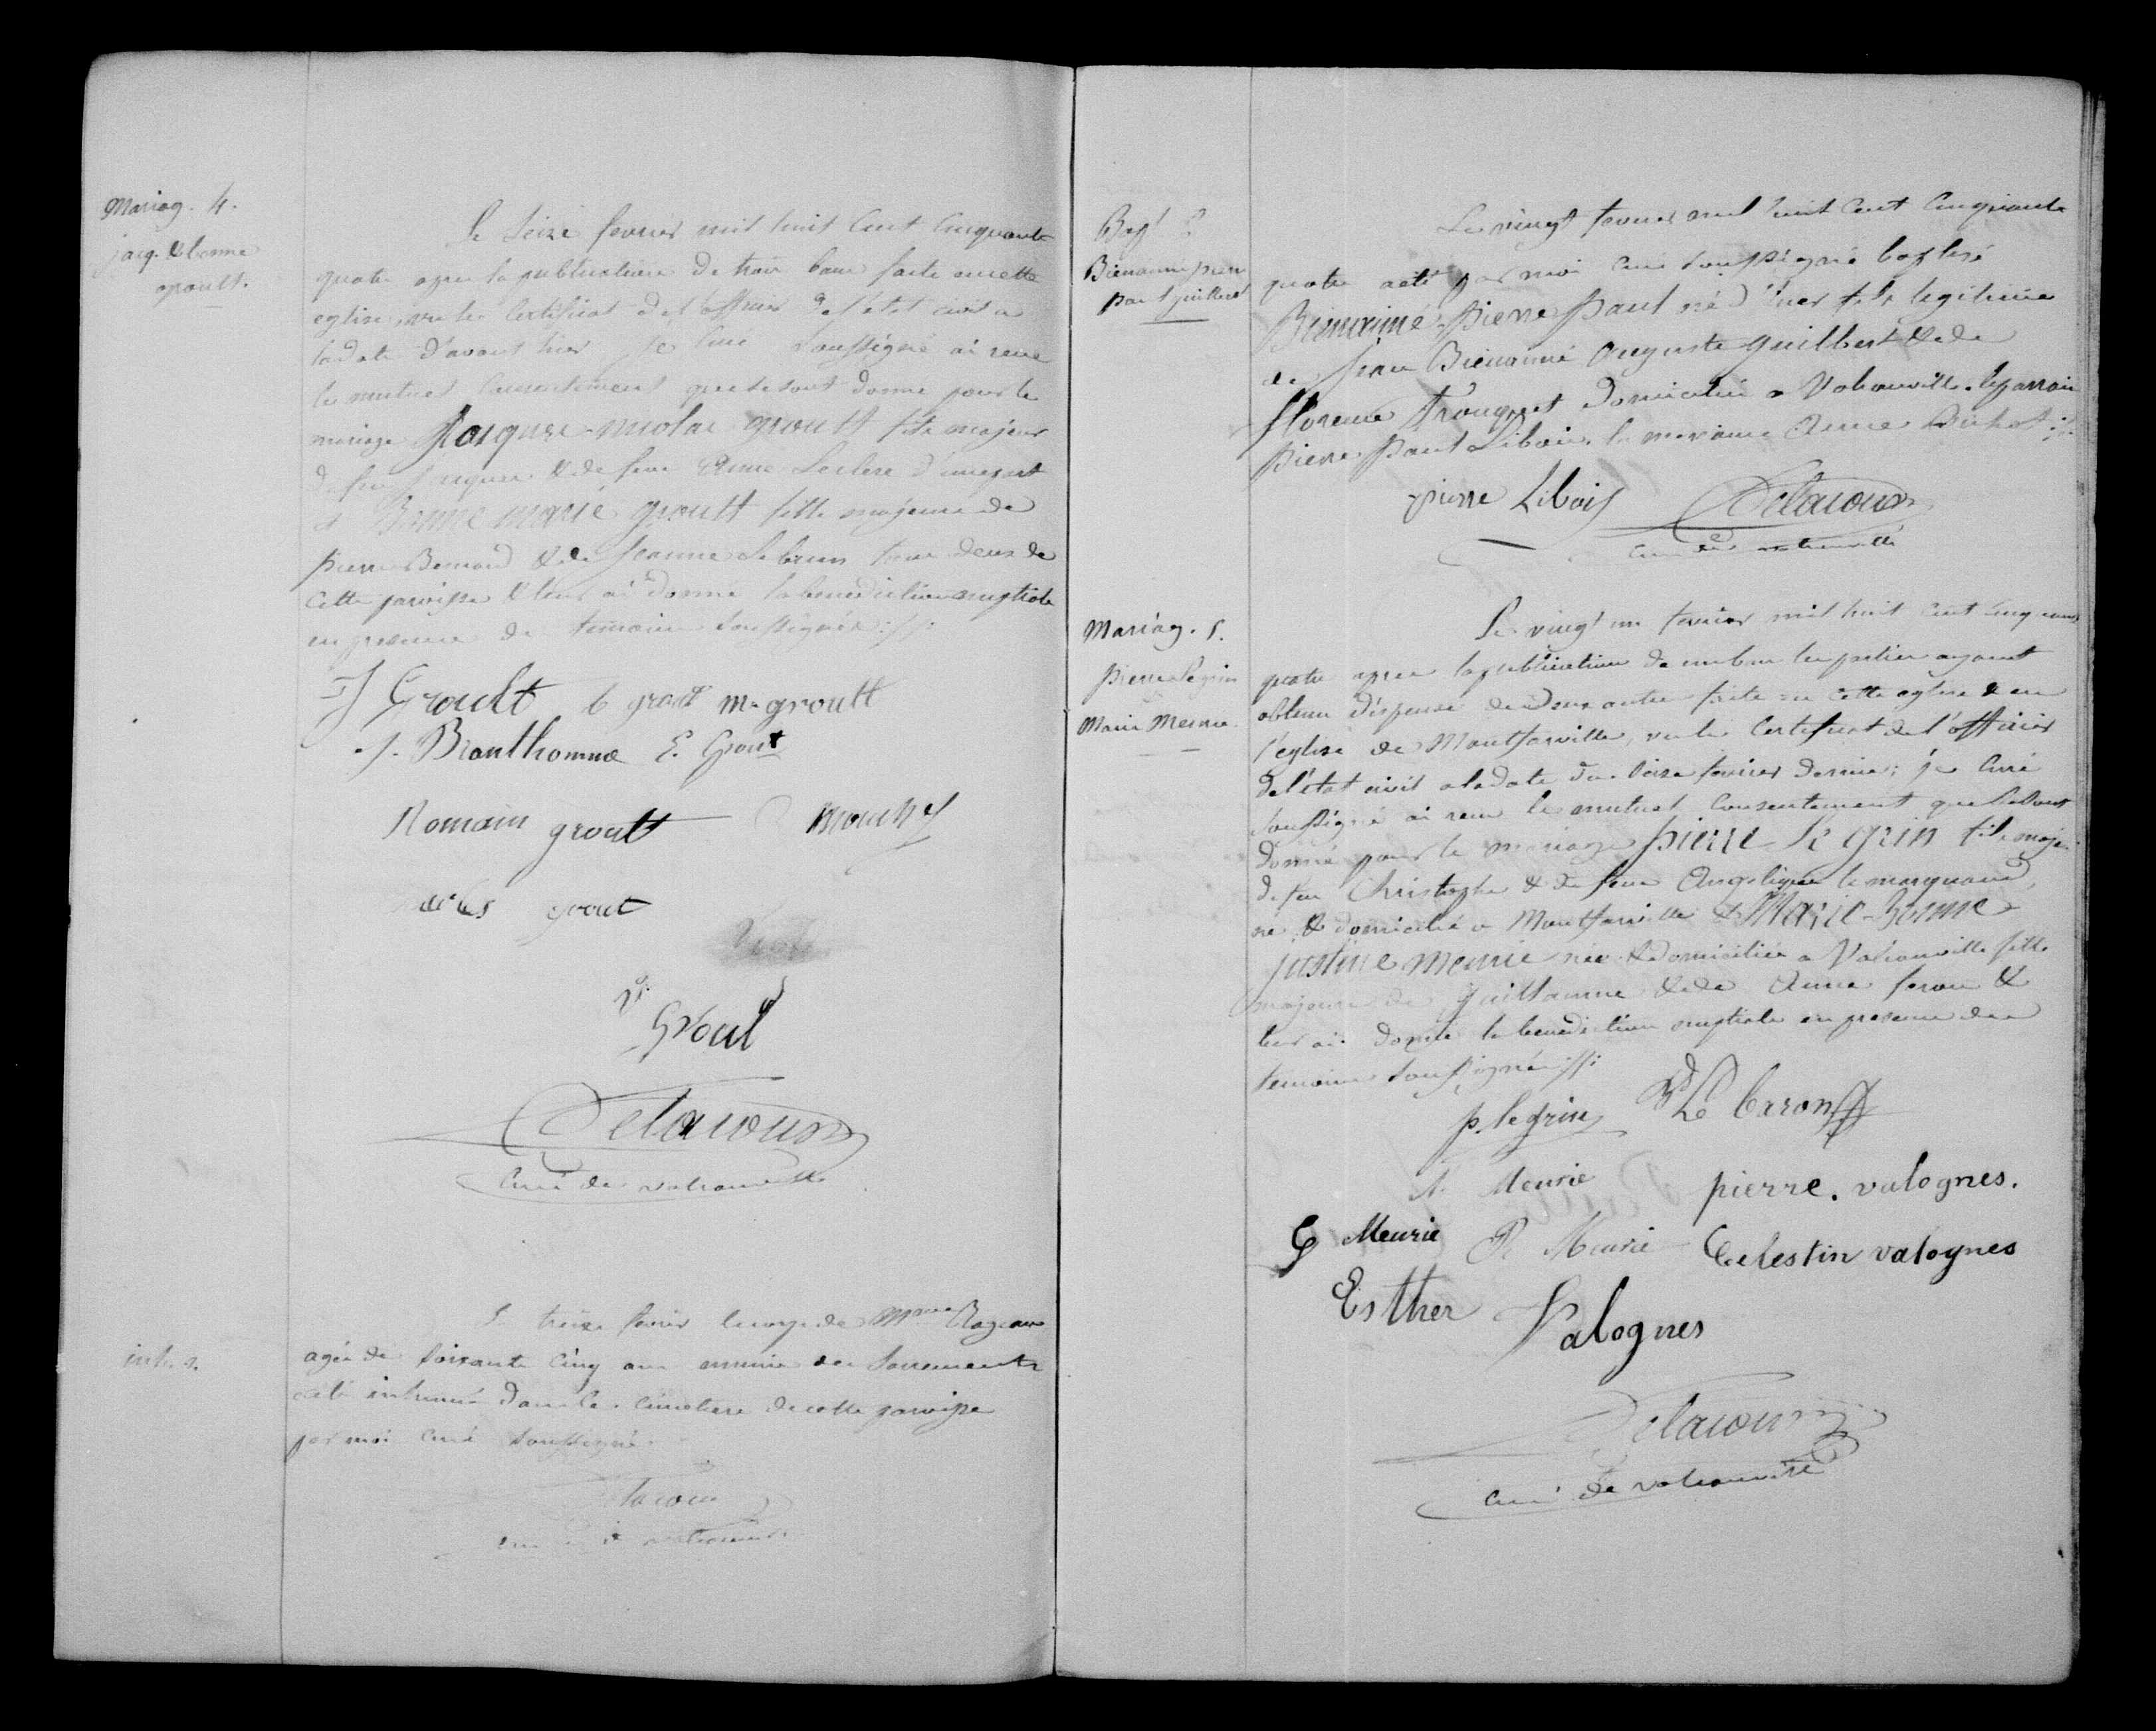 Mariag. 4.
jacq. & bonne
groult.
Le Seize fevrier mil huit Cent Cinquante
quatre apres la publication de trois bans faite en cette
eglise, vu le Certificat de l'officier de l'etat civil a
la date d'avant hier je Curé Soussigné ai recu
le mutuel Consentement que se sont donne pour le
mariage Jacques-nicolas groult fils majeur
de feu jacques & de feue Anne Leclerc d'une part
& Bonne marie groult fille majeure de
pierre Bernard & de Jeanne Lebrun tous deux de
Cette paroisse & leur ai donné la benediction nuptiale
en presence des temoins Soussignés
J Groult b grout m. groult
J. Branthomme E. Grout
Romain groult mouchel
grout
Groul
Delacour
Curé de valcanville
inh.
Le treize fevrier le corps de
agée de Soixante Cinq ans munie des Sacrements
a été inhumé dans le Cimetiere de cette paroisse
par moi Curé Soussigné.
Delacour
curé de valcanville
Bapt
Bienaimé pierre
paul guilbert
Le vingt fevrier mil huit Cent Cinquante
quatre a été par moi Curé Soussigné baptisé
Bienaimé-Pierre Paul né d'hier fils legitime
de Jean Bienaimé Auguste guilbert & de
florence Trouquet domiciliés a Valcanville. le parrain
Pierre Paul Libois. la marraine Anne
pierre Libois Delacour
Curé de valcanville
Mariag. 5.
pierre le grin
Marie Meurie
Le vingt un fevrier mil huit Cent Cinquante
quatre apres la publication de un ban les parties ayant
obtenu dispense des deux autres faite en cette eglise & en
l'eglise de Montfarville, vu le Certificat de l'officier
de l'état civil a la date du Seize fevrier dernier; je Curé
Soussigné ai recu le mutuel Consentement que se sont
donné pour le mariage pierre le grin fils maje
de feu Christophe & de feue Angelique le marquand,
né & domicilié a Montfarville & Marie-Bonne
justine meurie née & domiciliée a Valcanville fille
majeure de guillaume & de Anne &
leur ai donné la benediction nuptiale en presence des
temoins Soussignés
p. le grin Le baron
Meurie pierre. valognes.
G Meurie P. Meurie Celestin valognes
Esther Valognes
Delacour
curé de valcanville